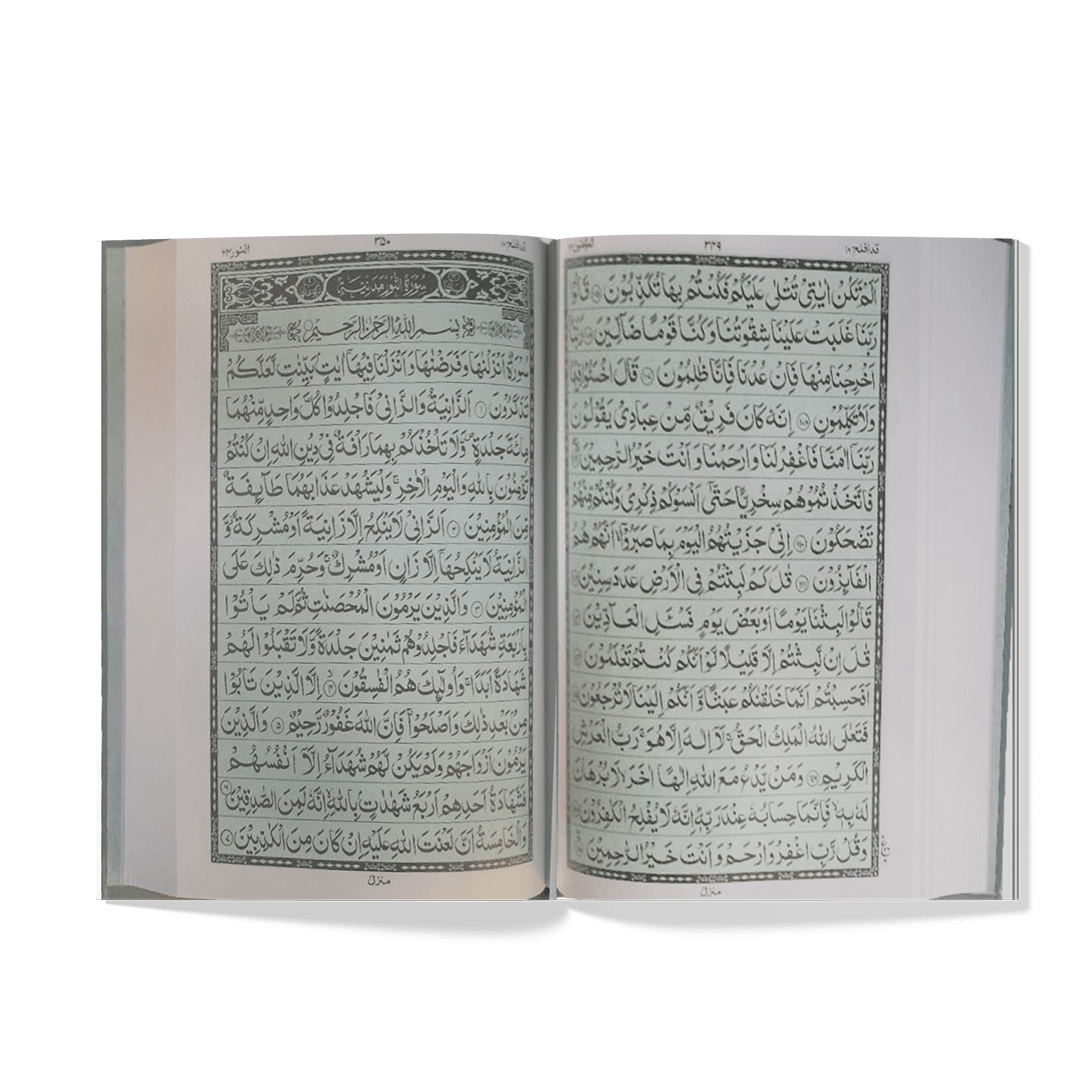 قد افلح ١٨
٣٤٩
المؤمنون ٢٣
اَلَمْ تَكُنْ اٰيٰتِيْ تُتْلٰى عَلَيْكُمْ فَكُنْتُمْ بِهَا تُكَذِّبُوْنَ ﴿١٠٥﴾ قَالُوْا
رَبَّنَا غَلَبَتْ عَلَيْنَا شِقْوَتُنَا وَكُنَّا قَوْمًا ضَآلِّيْنَ ﴿١٠٦﴾ رَبَّنَآ
اَخْرِجْنَا مِنْهَا فَاِنْ عُدْنَا فَاِنَّا ظٰلِمُوْنَ ﴿١٠٧﴾ قَالَ اخْسَـُٔوْا فِيْهَا
وَلَا تُكَلِّمُوْنِ ﴿١٠٨﴾ اِنَّهٗ كَانَ فَرِيْقٌ مِّنْ عِبَادِيْ يَقُوْلُوْنَ
رَبَّنَآ اٰمَنَّا فَاغْفِرْ لَنَا وَارْحَمْنَا وَاَنْتَ خَيْرُ الرّٰحِمِيْنَ ﴿١٠٩﴾
فَاتَّخَذْتُمُوْهُمْ سِخْرِيًّا حَتّٰٓى اَنْسَوْكُمْ ذِكْرِيْ وَكُنْتُمْ مِّنْهُمْ
تَضْحَكُوْنَ ﴿١١٠﴾ اِنِّيْ جَزَيْتُهُمُ الْيَوْمَ بِمَا صَبَرُوْٓا اَنَّهُمْ هُمُ
الْفَآئِزُوْنَ ﴿١١١﴾ قٰلَ كَمْ لَبِثْتُمْ فِي الْاَرْضِ عَدَدَ سِنِيْنَ ﴿١١٢﴾
قَالُوْا لَبِثْنَا يَوْمًا اَوْ بَعْضَ يَوْمٍ فَسْـَٔلِ الْعَآدِّيْنَ ﴿١١٣﴾
قٰلَ اِنْ لَّبِثْتُمْ اِلَّا قَلِيْلًا لَّوْ اَنَّكُمْ كُنْتُمْ تَعْلَمُوْنَ ﴿١١٤﴾
اَفَحَسِبْتُمْ اَنَّمَا خَلَقْنٰكُمْ عَبَثًا وَّاَنَّكُمْ اِلَيْنَا لَا تُرْجَعُوْنَ ﴿١١٥﴾
فَتَعٰلَى اللّٰهُ الْمَلِكُ الْحَقُّ لَآ اِلٰهَ اِلَّا هُوَ رَبُّ الْعَرْشِ
الْكَرِيْمِ ﴿١١٦﴾ وَمَنْ يَّدْعُ مَعَ اللّٰهِ اِلٰهًا اٰخَرَ لَا بُرْهَانَ
لَهٗ بِهٖ فَاِنَّمَا حِسَابُهٗ عِنْدَ رَبِّهٖ اِنَّهٗ لَا يُفْلِحُ الْكٰفِرُوْنَ ﴿١١٧﴾
وَقُلْ رَّبِّ اغْفِرْ وَارْحَمْ وَاَنْتَ خَيْرُ الرّٰحِمِيْنَ ﴿١١٨﴾
منزل
قد افلح ١٨
٣٥٠
النور ٢٤
سُوْرَةُ النُّوْرِ مَدَنِيَّةٌ
بِسْمِ اللّٰهِ الرَّحْمٰنِ الرَّحِيْمِ
سُوْرَةٌ اَنْزَلْنٰهَا وَفَرَضْنٰهَا وَاَنْزَلْنَا فِيْهَآ اٰيٰتٍۭ بَيِّنٰتٍ لَّعَلَّكُمْ
تَذَكَّرُوْنَ ﴿١﴾ اَلزَّانِيَةُ وَالزَّانِيْ فَاجْلِدُوْا كُلَّ وَاحِدٍ مِّنْهُمَا
مِائَةَ جَلْدَةٍ وَّلَا تَاْخُذْكُمْ بِهِمَا رَاْفَةٌ فِيْ دِيْنِ اللّٰهِ اِنْ كُنْتُمْ
تُؤْمِنُوْنَ بِاللّٰهِ وَالْيَوْمِ الْاٰخِرِ وَلْيَشْهَدْ عَذَابَهُمَا طَآئِفَةٌ
مِّنَ الْمُؤْمِنِيْنَ ﴿٢﴾ اَلزَّانِيْ لَا يَنْكِحُ اِلَّا زَانِيَةً اَوْ مُشْرِكَةً وَّ
الزَّانِيَةُ لَا يَنْكِحُهَآ اِلَّا زَانٍ اَوْ مُشْرِكٌ وَحُرِّمَ ذٰلِكَ عَلَى
الْمُؤْمِنِيْنَ ﴿٣﴾ وَالَّذِيْنَ يَرْمُوْنَ الْمُحْصَنٰتِ ثُمَّ لَمْ يَاْتُوْا
بِاَرْبَعَةِ شُهَدَآءَ فَاجْلِدُوْهُمْ ثَمٰنِيْنَ جَلْدَةً وَّلَا تَقْبَلُوْا لَهُمْ
شَهَادَةً اَبَدًا وَاُولٰٓئِكَ هُمُ الْفٰسِقُوْنَ ﴿٤﴾ اِلَّا الَّذِيْنَ تَابُوْا
مِنْۢ بَعْدِ ذٰلِكَ وَاَصْلَحُوْا فَاِنَّ اللّٰهَ غَفُوْرٌ رَّحِيْمٌ ﴿٥﴾ وَالَّذِيْنَ
يَرْمُوْنَ اَزْوَاجَهُمْ وَلَمْ يَكُنْ لَّهُمْ شُهَدَآءُ اِلَّآ اَنْفُسُهُمْ
فَشَهَادَةُ اَحَدِهِمْ اَرْبَعُ شَهٰدٰتٍۭ بِاللّٰهِ اِنَّهٗ لَمِنَ الصّٰدِقِيْنَ ﴿٦﴾
وَالْخَامِسَةُ اَنَّ لَعْنَتَ اللّٰهِ عَلَيْهِ اِنْ كَانَ مِنَ الْكٰذِبِيْنَ ﴿٧﴾
منزل